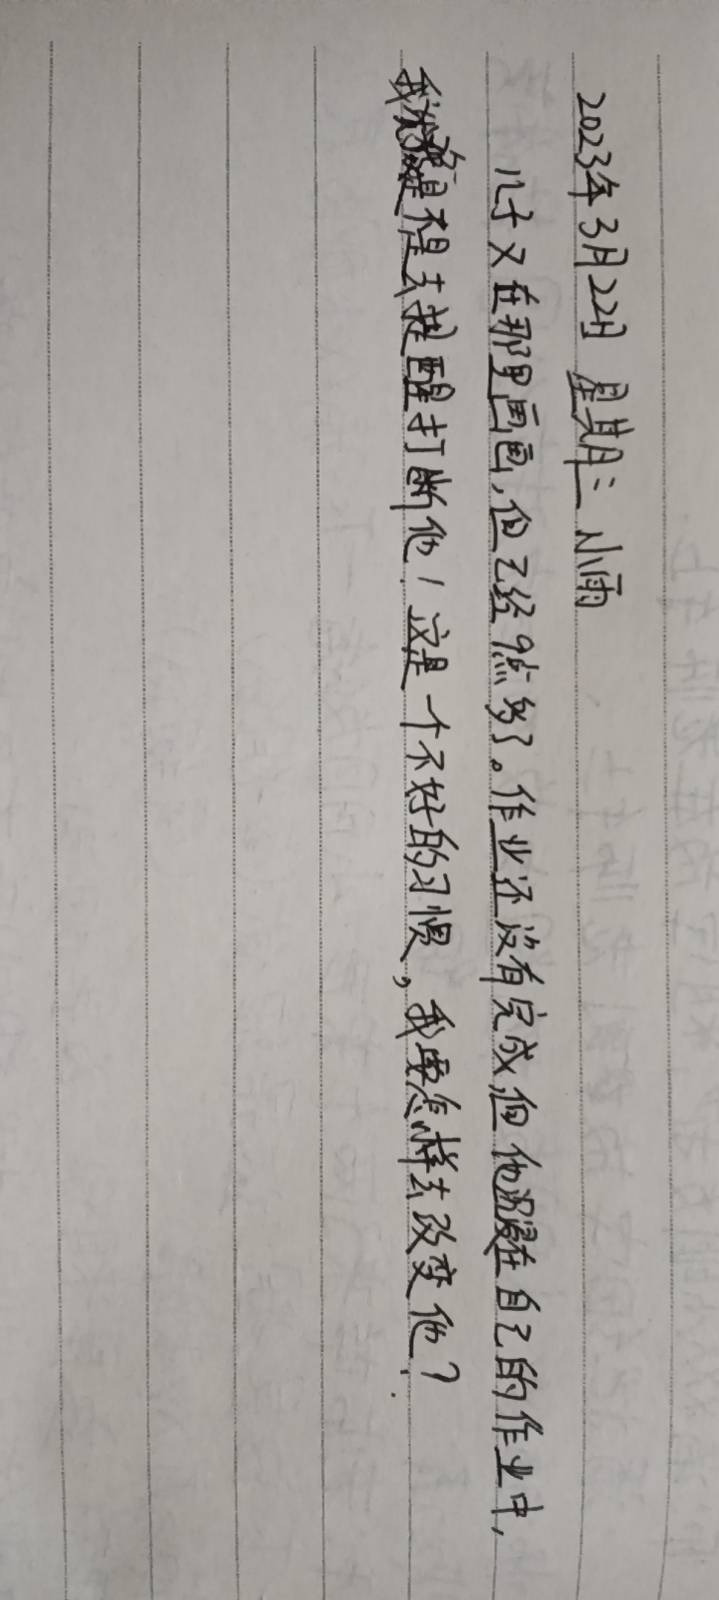 2023年3月22日 星期三 小雨
儿子又在那里画画，但已经9点多了。作业还没有完成，但他沉浸在自己的作业中，
我提去提醒打断他！这是一个不好的习惯，我要怎样去改变他？